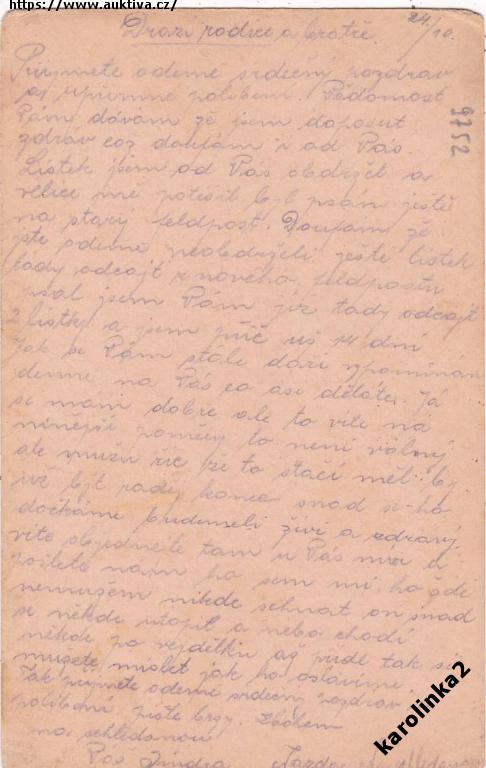 https://www.auktiva.cz/
24/10.
Drazí rodiče a bratře.
Přijmete odemě srdečný pozdrav
a upřimné polibení. Vědomost
Vám dávam že jsem doposut
zdráv což doufám i od Vás.
Lístek jsem od Vás obdržel a
velice mě potěsil byl psán ještě
na starý feldpost. Doufám že
jste odemě neobdrželi ještě lístek
tady odcajť z nového feldpostu
psal jsem Vám již tady odcajť
2 lístky a jsem přič už 14 dní
Jak se Vám stále daří vzpomínám
denně na Vás co asi děláte. Já
se mám dobře ale to víte na
ninější poměry to není válný
ale mužu říc že to stačí měl by
už být rady konec snad se ho
dočkáme budemeli živí a zdravý.
víte objednejte tam u Vás mír a
pošlete nám ho sem mi ho zde
nemužem nikde sehnat on snad
se někde utopil a nebo chodí
někde po vejdělku až přide tak si
mužete myslet jak ho oslavíme.
Tak přijmete odemě srdečný pozdrav
polibení pište brzy. Zbohem
na schledanou
Vás Jindra
9752
karolinka2